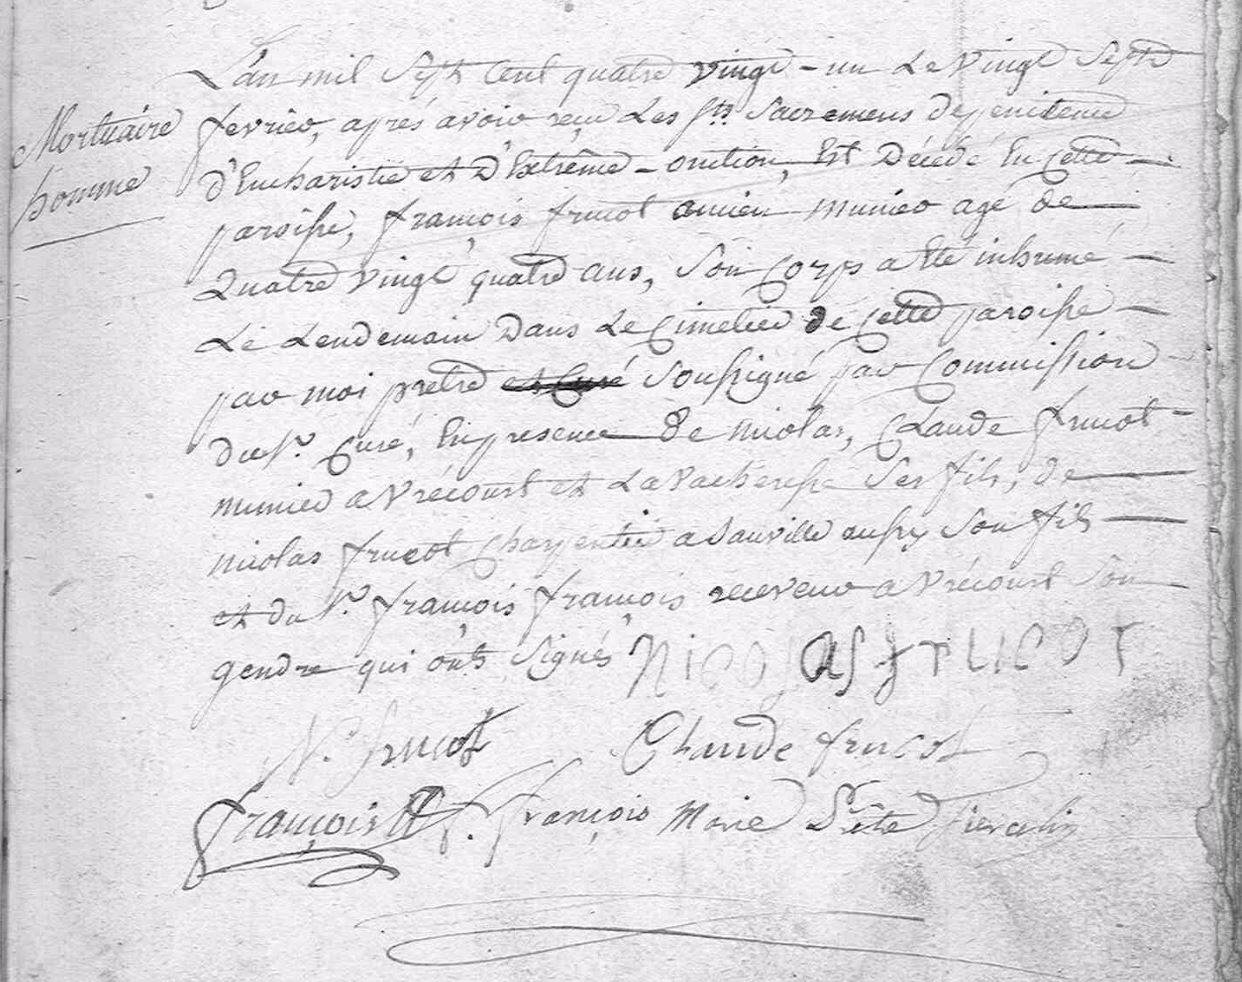 L'an mil Sept Cent quatre vingt - un Le vingt Sept
Mortuaire
homme
fevrier, aprés avoir reçu Les Sts Sacremens de penitence
d'Eucharistie et D'Extrême - onction, Est Décédé En Cette
paroisse, françois frucot ancien munier agé de
Quatre vingt quatre ans, Son Corps a Eté inhumé
Le Lendemain Dans Le Cimetier de Cette paroisse
par moi pretre et Curé Soussigné par Commission
du Sr. Curé, En presence De nicolas, Claude frucot
munier a Vrécourt et La Vacheresse Ses fils, de
nicolas frucot Charpentier a Sauville aussy Son fils
et du Sr. françois françois receveur a Vrécourt Son
gendre qui onts Signés NICOLAS frUCOT
N. frucot Claude frucot
françois françois Marie Ptre